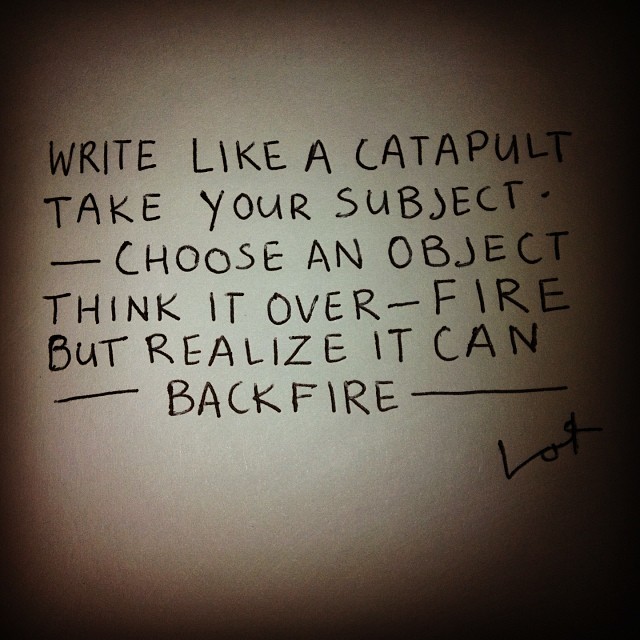 WRITE LIKE A CATAPULT
TAKE YOUR SUBJECT.
— CHOOSE AN OBJECT
THINK IT OVER — FIRE
BUT REALIZE IT CAN
— BACKFIRE —
Lot